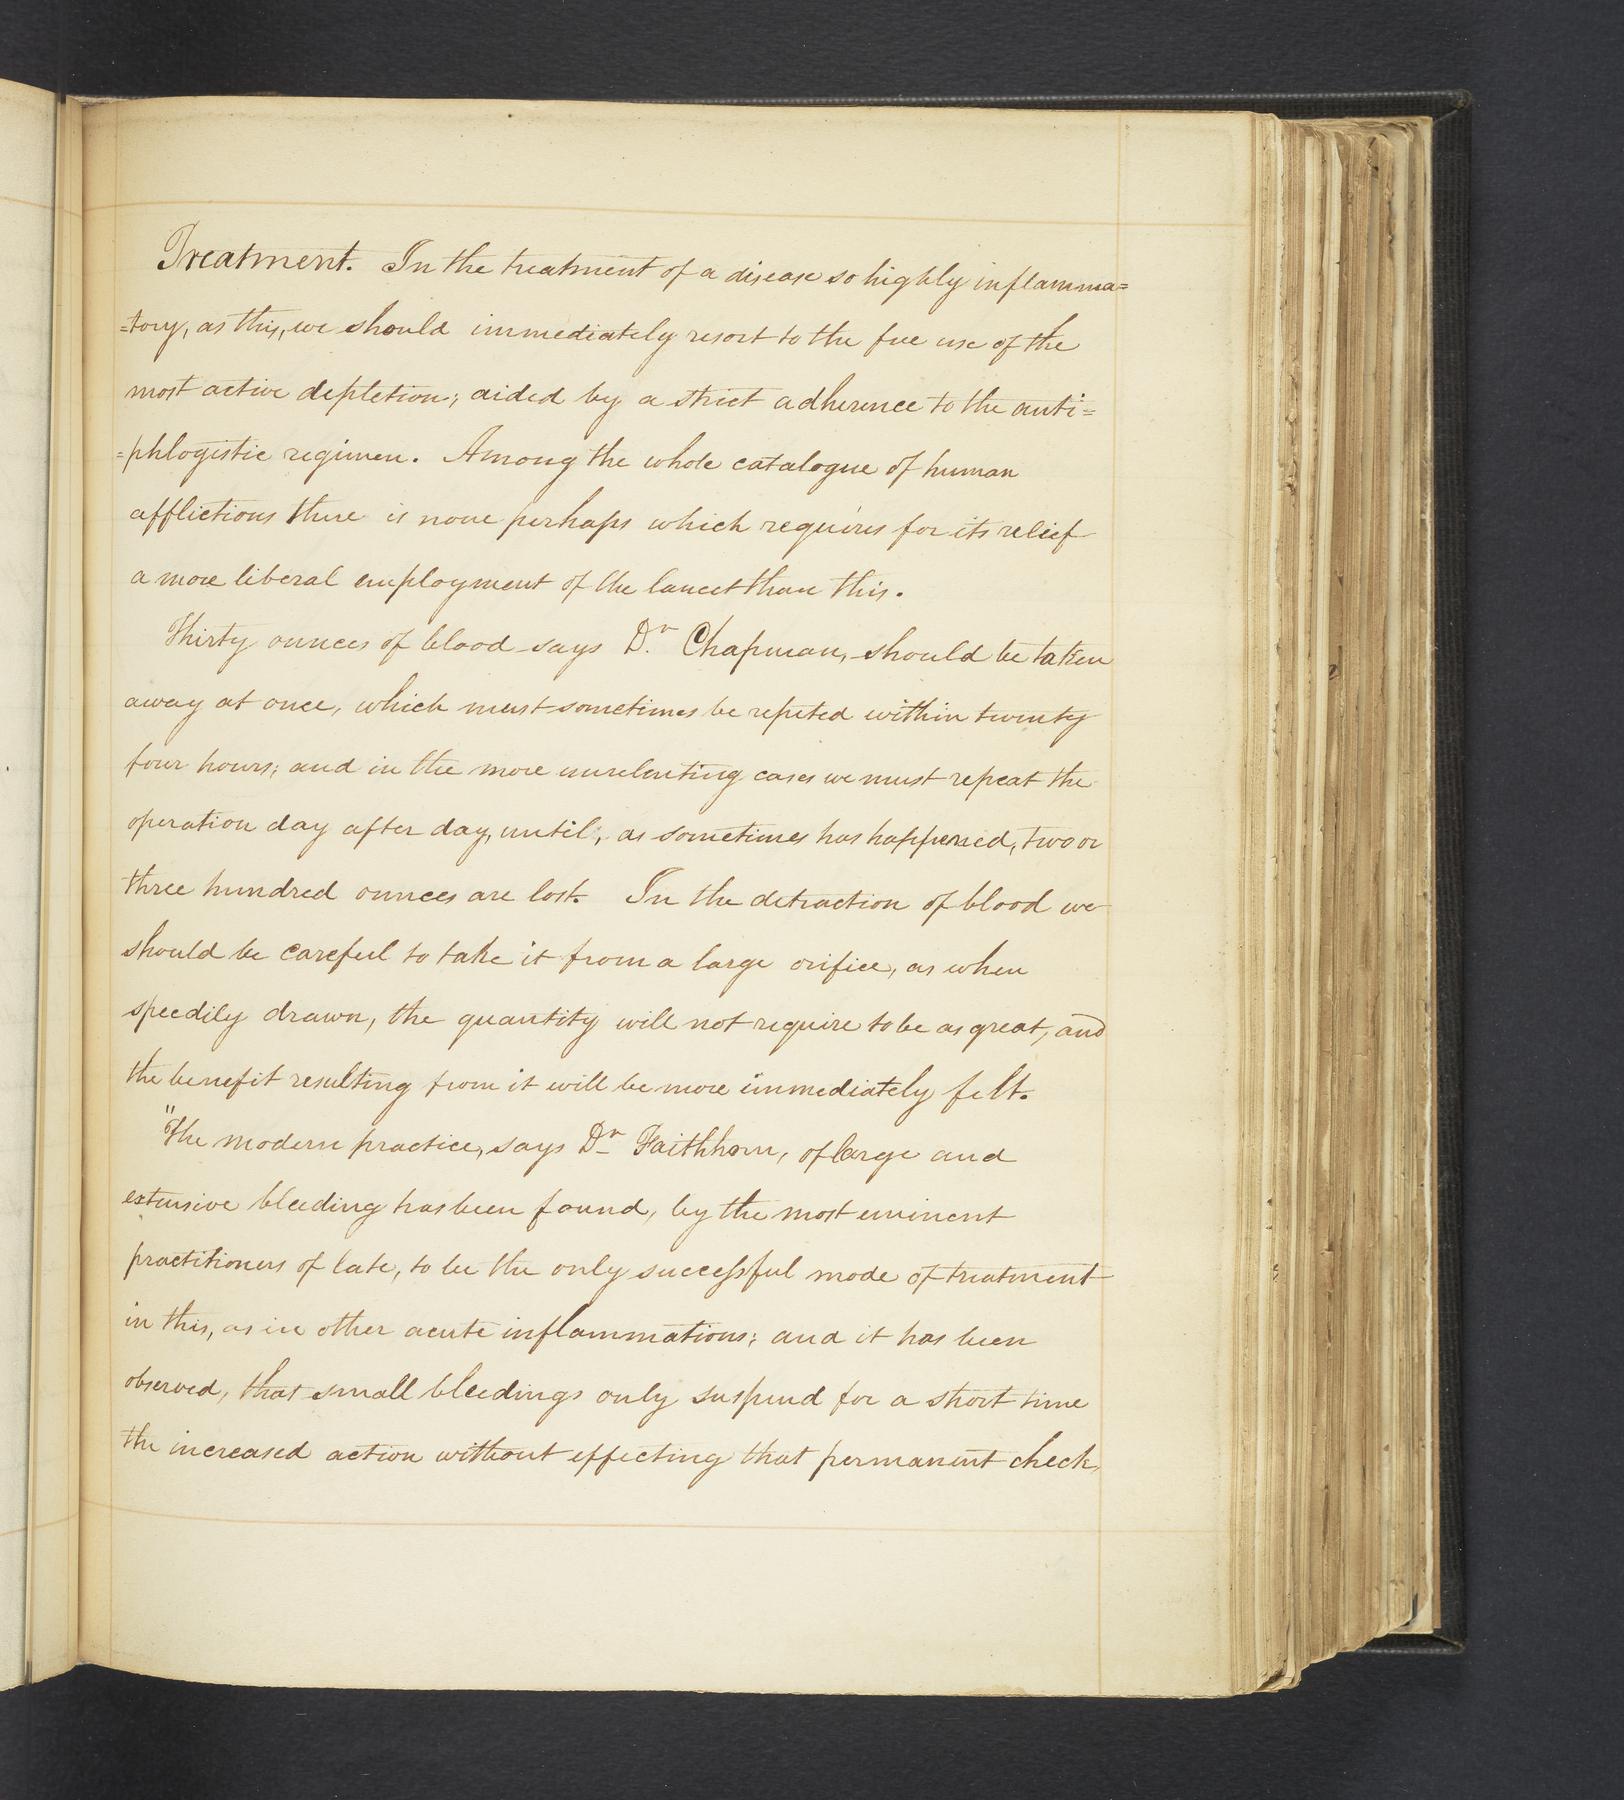 Treatment. In the treatment of a disease so highly inflamma=
=tory, as this, we should immediately resort to the free use of the
most active depletion; aided by a strict adherence to the anti=
=phlogistic regimen. Among the whole catalogue of human
afflictions there is none perhaps which requires for its relief
a more liberal employment of the lancet than this.
Thirty ounces of blood says Dr. Chapman, should be taken
away at once, which must sometimes be repeted within twenty
four hours; and in the more unrelenting cases we must repeat the
operation day after day, until, as sometimes has happened, two or
three hundred ounces are lost. In the detraction of blood we
should be careful to take it from a large orifice, as when
speedily drawn, the quantity will not require to be as great, and
the benefit resulting from it will be more immediately felt.
"The modern practice, says Dr Faithhorn, of large and
extensive bleeding has been found, by the most eminent
practitioners of late, to be the only successful mode of treatment
in this, as in other acute inflammations; and it has been
observed, that small bleedings only suspend for a short time
the increased action without effecting that permanent check,